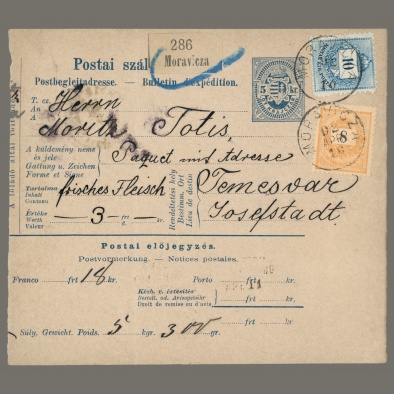 286
Moravicza
Postai szál
Postbegleitadresse. — Bulletin d'expédition.
5 kr
10
8
T. cz. Herrn
An
A Moritz Totis,
A küldemény neme
és jele
Gattung u. Zeichen
Forme et Signe
Paquet mit Adresse
Tartalma
Inhalt
Contenu
frisches Fleisch
Rendeltetési hely
Bestimm. Ort
Lieu de destin
Temesvar
Josefstadt.
Értéke
Werth
Valeur
3 frt kr.
Postai előjegyzés.
Postvormerkung. — Notices postales.
Franco frt 18 kr. Porto frt kr.
Kézb. v. értesítés
Bestell. od. Avisogebühr
Droit de remise ou d'avis
frt kr.
frt kr.
Súly. Gewicht. Poids. 5 kgr. 300 gr.